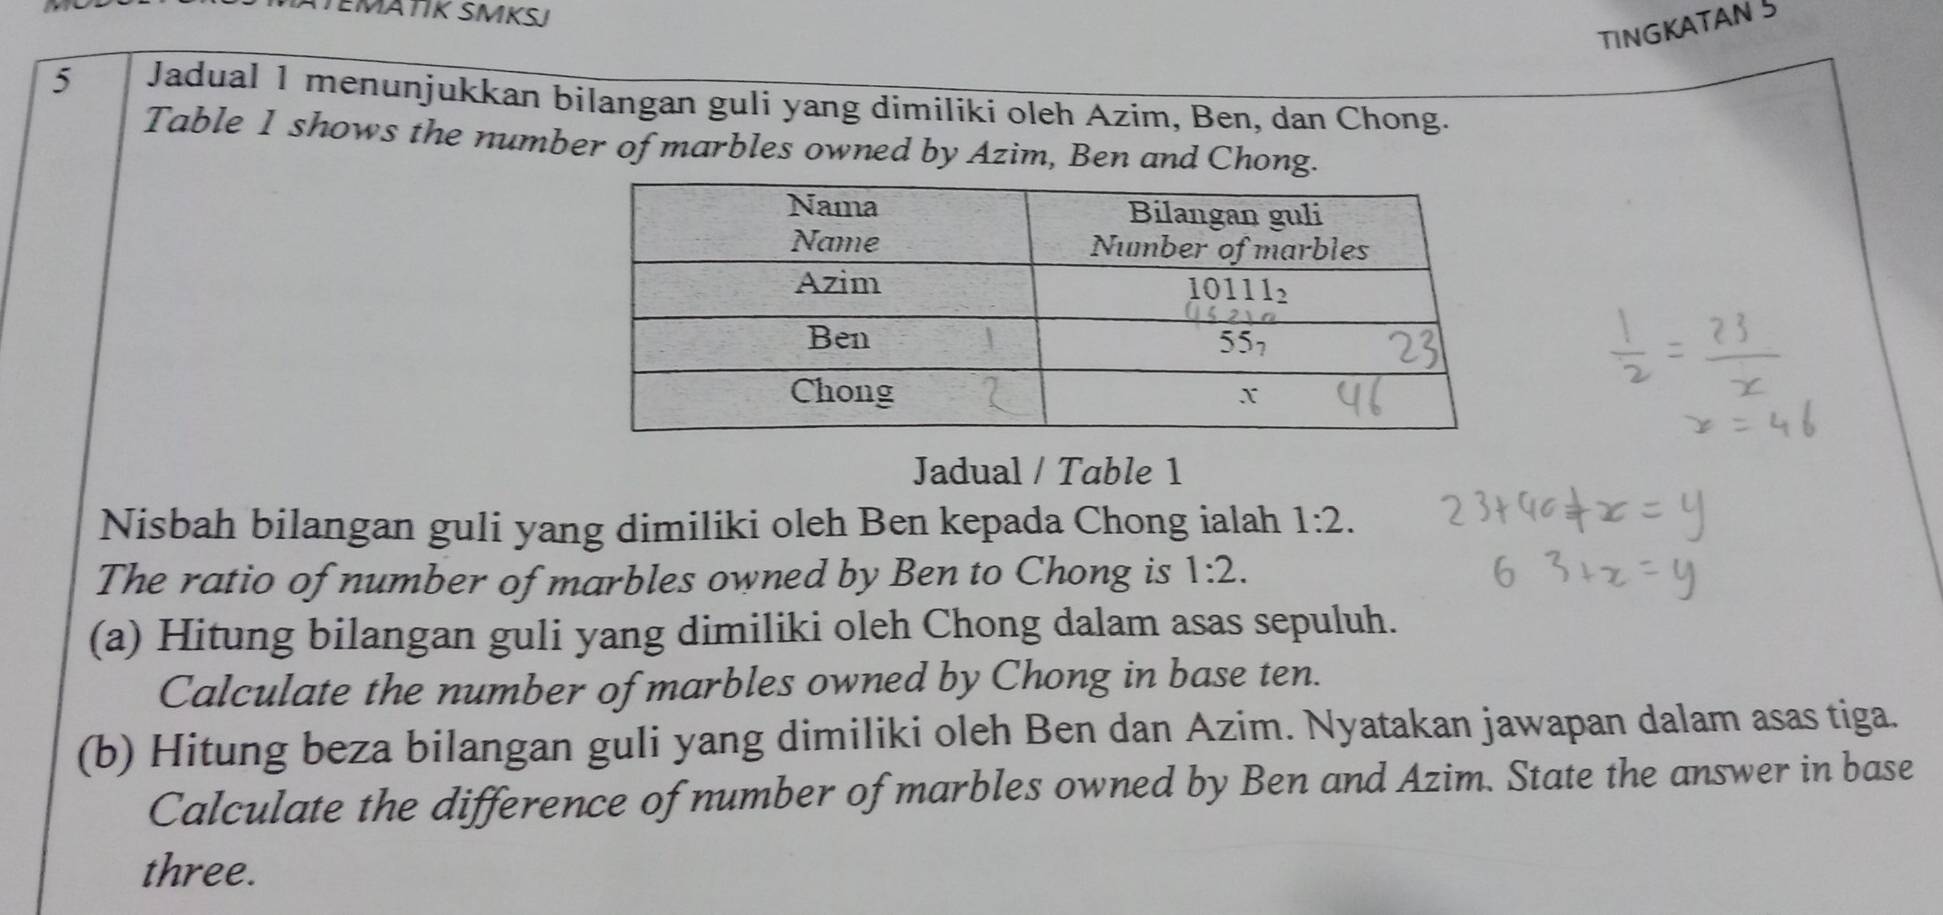 MATEMATIK SMKSJ
TINGKATAN 5
5 Jadual 1 menunjukkan bilangan guli yang dimiliki oleh Azim, Ben, dan Chong.
Table 1 shows the number of marbles owned by Azim, Ben and Chong.
Nama Bilangan guli
Name Number of marbles
Azim 10111₂
43210
Ben 1 55₇ 23
Chong 2 x 46
1/2 = 23/x
x = 46
Jadual / Table 1
Nisbah bilangan guli yang dimiliki oleh Ben kepada Chong ialah 1:2.
23+40+x = y
The ratio of number of marbles owned by Ben to Chong is 1:2.
63+x = y
(a) Hitung bilangan guli yang dimiliki oleh Chong dalam asas sepuluh.
Calculate the number of marbles owned by Chong in base ten.
(b) Hitung beza bilangan guli yang dimiliki oleh Ben dan Azim. Nyatakan jawapan dalam asas tiga.
Calculate the difference of number of marbles owned by Ben and Azim. State the answer in base
three.